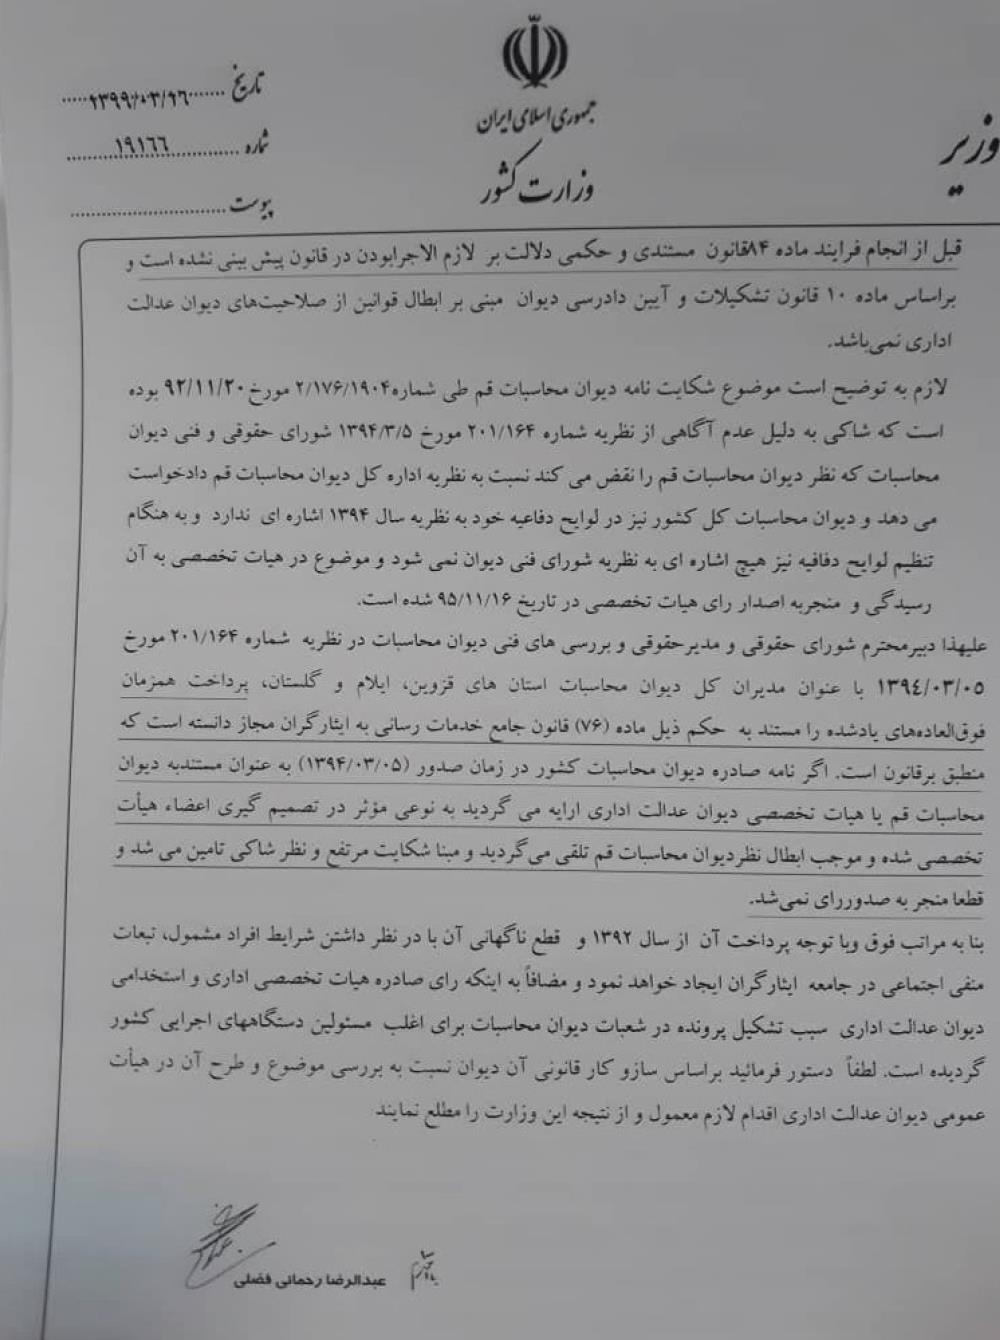 جمهوری اسلامی ایران
وزارت کشور
وزیر
تاریخ ۱۳۹۹/۰۳/۲۶
شماره ۱۹۱۶۶
پیوست
قبل از انجام فرایند ماده ۸۴قانون مستندی و حکمی دلالت بر لازم الاجرابودن در قانون پیش بینی نشده است و
براساس ماده ۱۰ قانون تشکیلات و آیین دادرسی دیوان مبنی بر ابطال قوانین از صلاحیت‌های دیوان عدالت
اداری نمی‌باشد.
لازم به توضیح است موضوع شکایت نامه دیوان محاسبات قم طی شماره۲/۱۷۶/۱۹۰۴ مورخ۹۲/۱۱/۲۰ بوده
است که شاکی به دلیل عدم آگاهی از نظریه شماره ۲۰۱/۱۶۴ مورخ ۱۳۹۴/۳/۵ شورای حقوقی و فنی دیوان
محاسبات که نظر دیوان محاسبات قم را نقض می کند نسبت به نظریه اداره کل دیوان محاسبات قم دادخواست
می دهد و دیوان محاسبات کل کشور نیز در لوایح دفاعیه خود به نظریه سال ۱۳۹۴ اشاره ای ندارد و به هنگام
تنظیم لوایح دفافیه نیز هیچ اشاره ای به نظریه شورای فنی دیوان نمی شود و موضوع در هیات تخصصی به آن
رسیدگی و منجربه اصدار رای هیات تخصصی در تاریخ ۹۵/۱۱/۱۶ شده است.
علیهذا دبیرمحترم شورای حقوقی و مدیرحقوقی و بررسی های فنی دیوان محاسبات در نظریه شماره ۲۰۱/۱۶۴ مورخ
۱۳۹٤/۰۳/۰۵ با عنوان مدیران کل دیوان محاسبات استان های قزوین، ایلام و گلستان، پرداخت همزمان
فوق‌العاده‌های یادشده را مستند به حکم ذیل ماده (۷۶) قانون جامع خدمات رسانی به ایثارگران مجاز دانسته است که
منطبق برقانون است. اگر نامه صادره دیوان محاسبات کشور در زمان صدور (۱۳۹۴/۰۳/۰۵) به عنوان مستندبه دیوان
محاسبات قم یا هیات تخصصی دیوان عدالت اداری ارایه می گردید به نوعی مؤثر در تصمیم گیری اعضاء هیأت
تخصصی شده و موجب ابطال نظردیوان محاسبات قم تلقی می‌گردید و مبنا شکایت مرتفع و نظر شاکی تامین می شد و
قطعا منجر به صدوررای نمی‌شد.
بنا به مراتب فوق وبا توجه پرداخت آن از سال ۱۳۹۲ و قطع ناگهانی آن با در نظر داشتن شرایط افراد مشمول، تبعات
منفی اجتماعی در جامعه ایثارگران ایجاد خواهد نمود و مضافاً به اینکه رای صادره هیات تخصصی اداری و استخدامی
دیوان عدالت اداری سبب تشکیل پرونده در شعبات دیوان محاسبات برای اغلب مسئولین دستگاههای اجرایی کشور
گردیده است. لطفاً دستور فرمائید براساس سازو کار قانونی آن دیوان نسبت به بررسی موضوع و طرح آن در هیأت
عمومی دیوان عدالت اداری اقدام لازم معمول و از نتیجه این وزارت را مطلع نمایند
عبدالرضا رحمانی فضلی